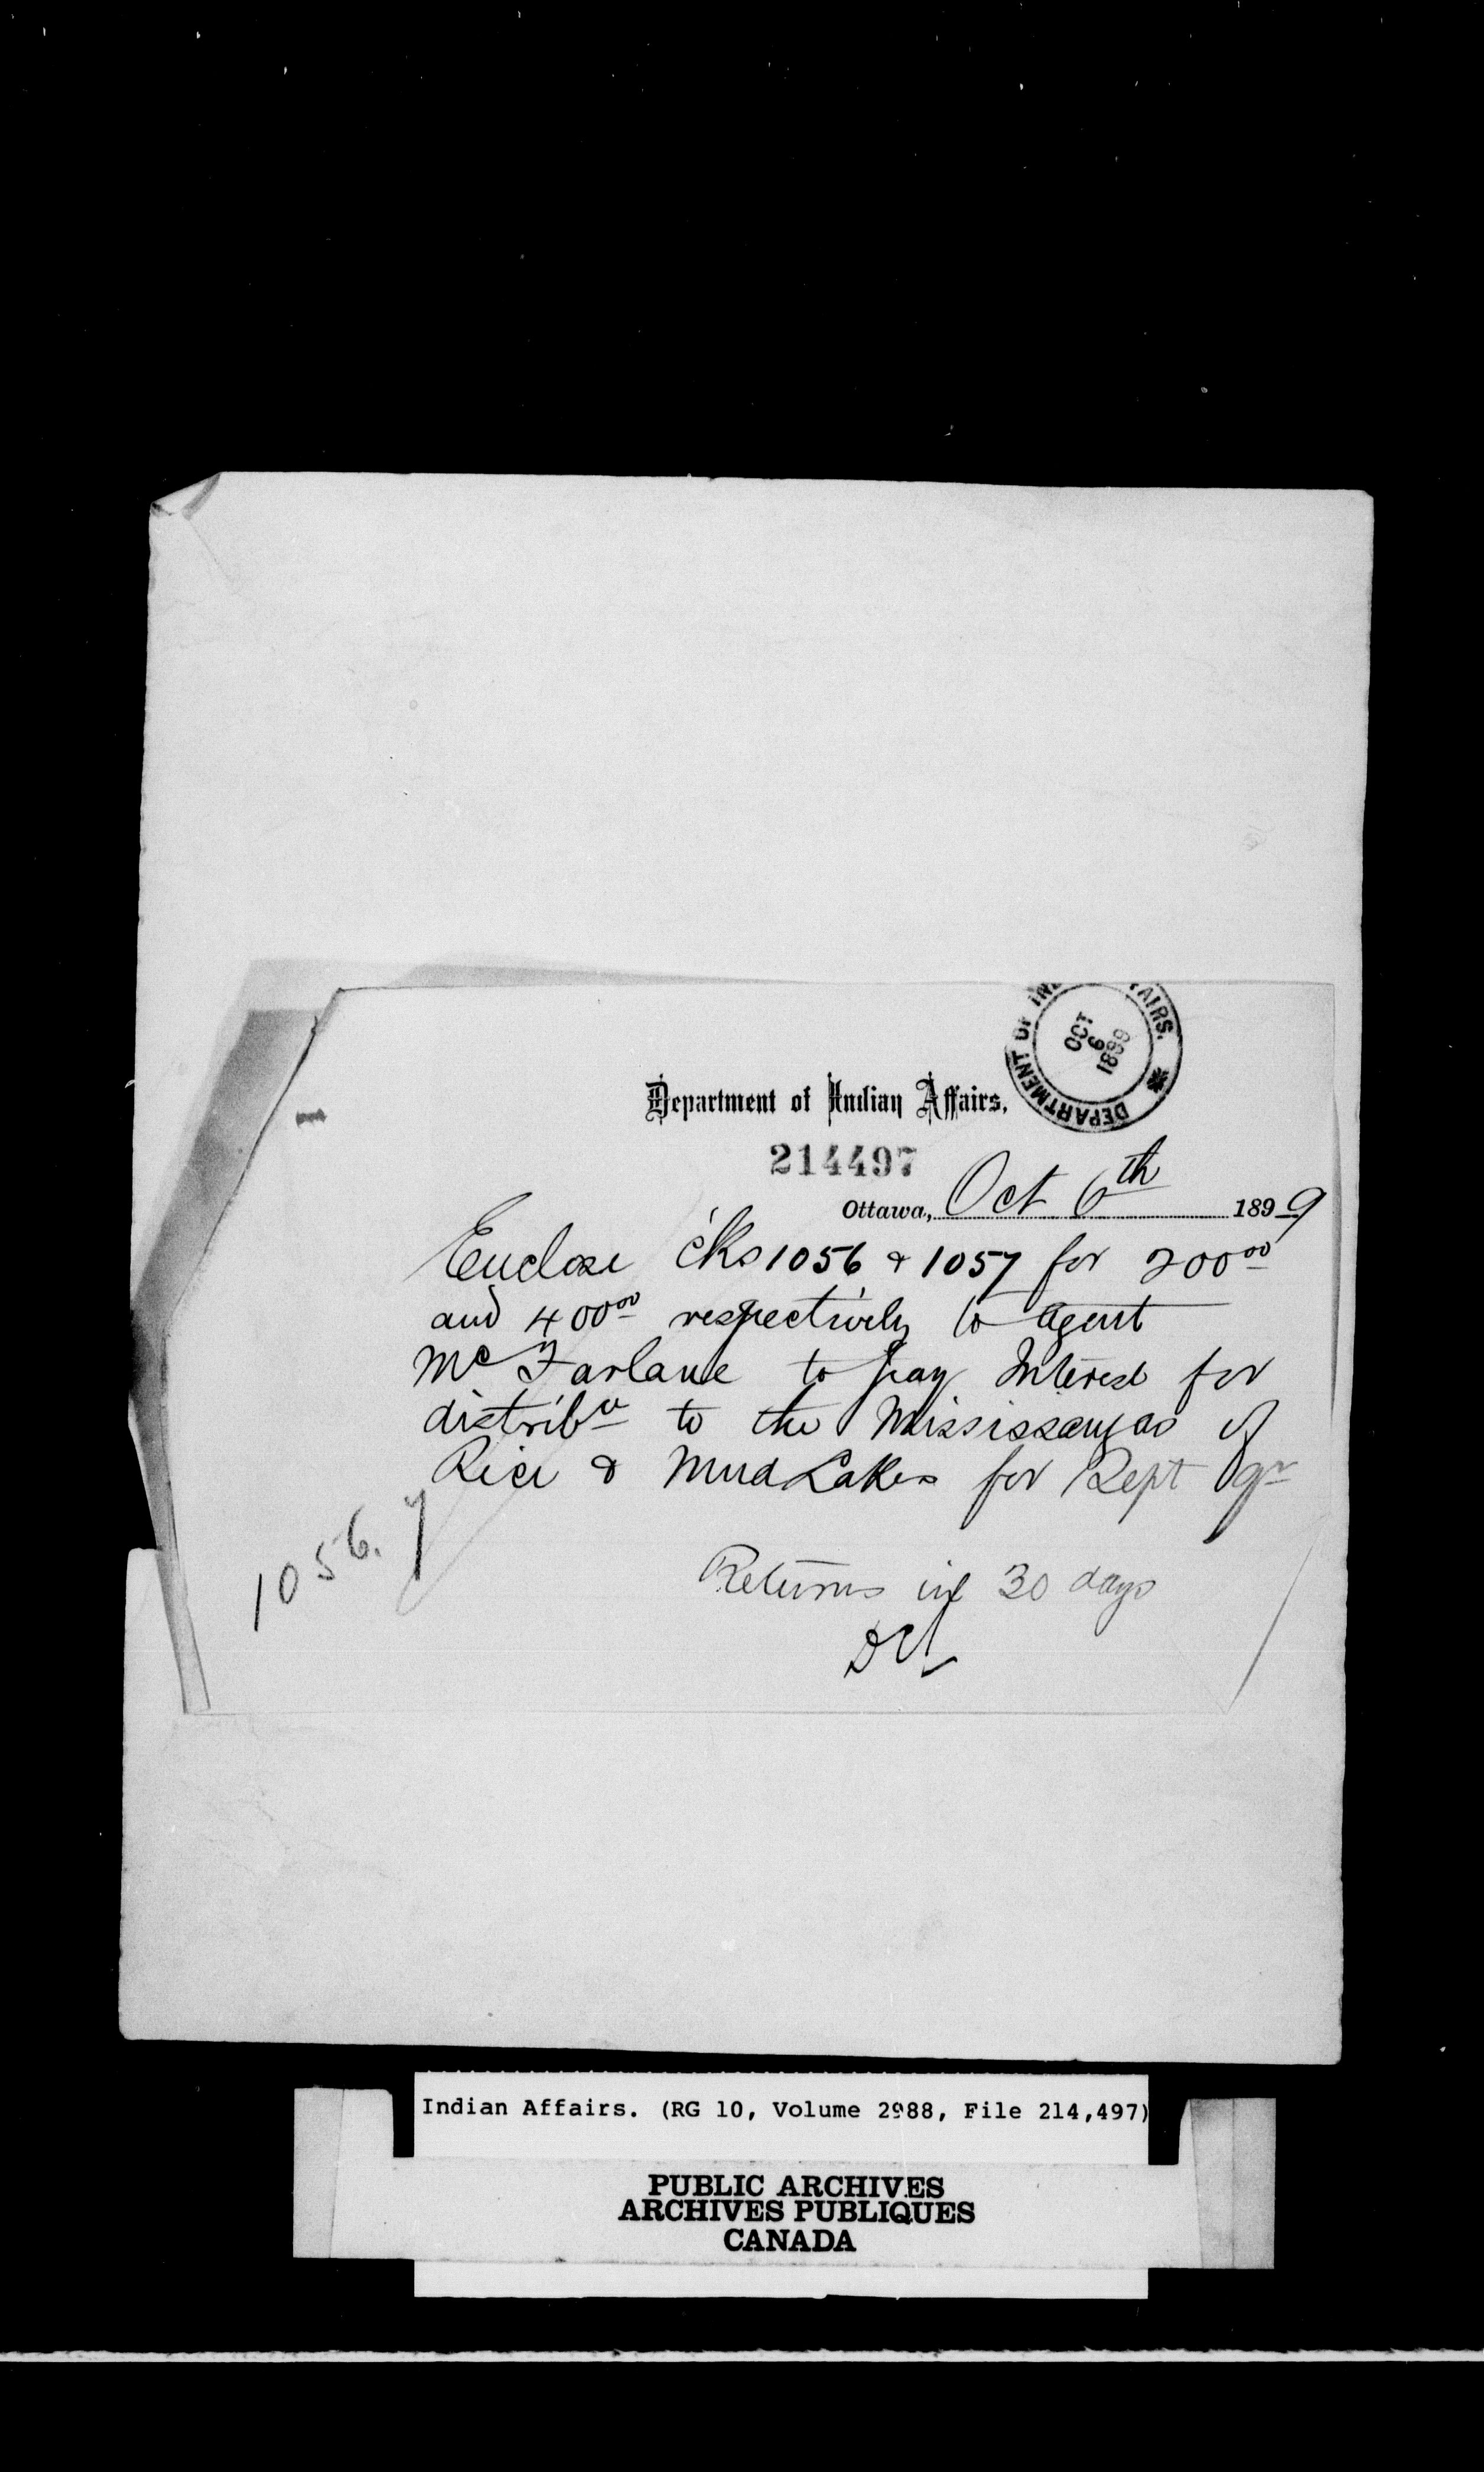 DEPARTMENT OF IN AIRS.
OCT
6
1899
Department of Indian Affairs,
214497
Ottawa, Oct 6th 1899
Enclose c'ks 1056 & 1057 for 200 00
and 400 00 respectively to Agent
McFarlane to pay Interest for
distribn to the Mississaugas of
Rice & Mud Lakes for Sept qr
1056.7
Returns in 30 days
Indian Affairs. (RG 10, Volume 2988, File 214,497)
PUBLIC ARCHIVES
ARCHIVES PUBLIQUES
CANADA